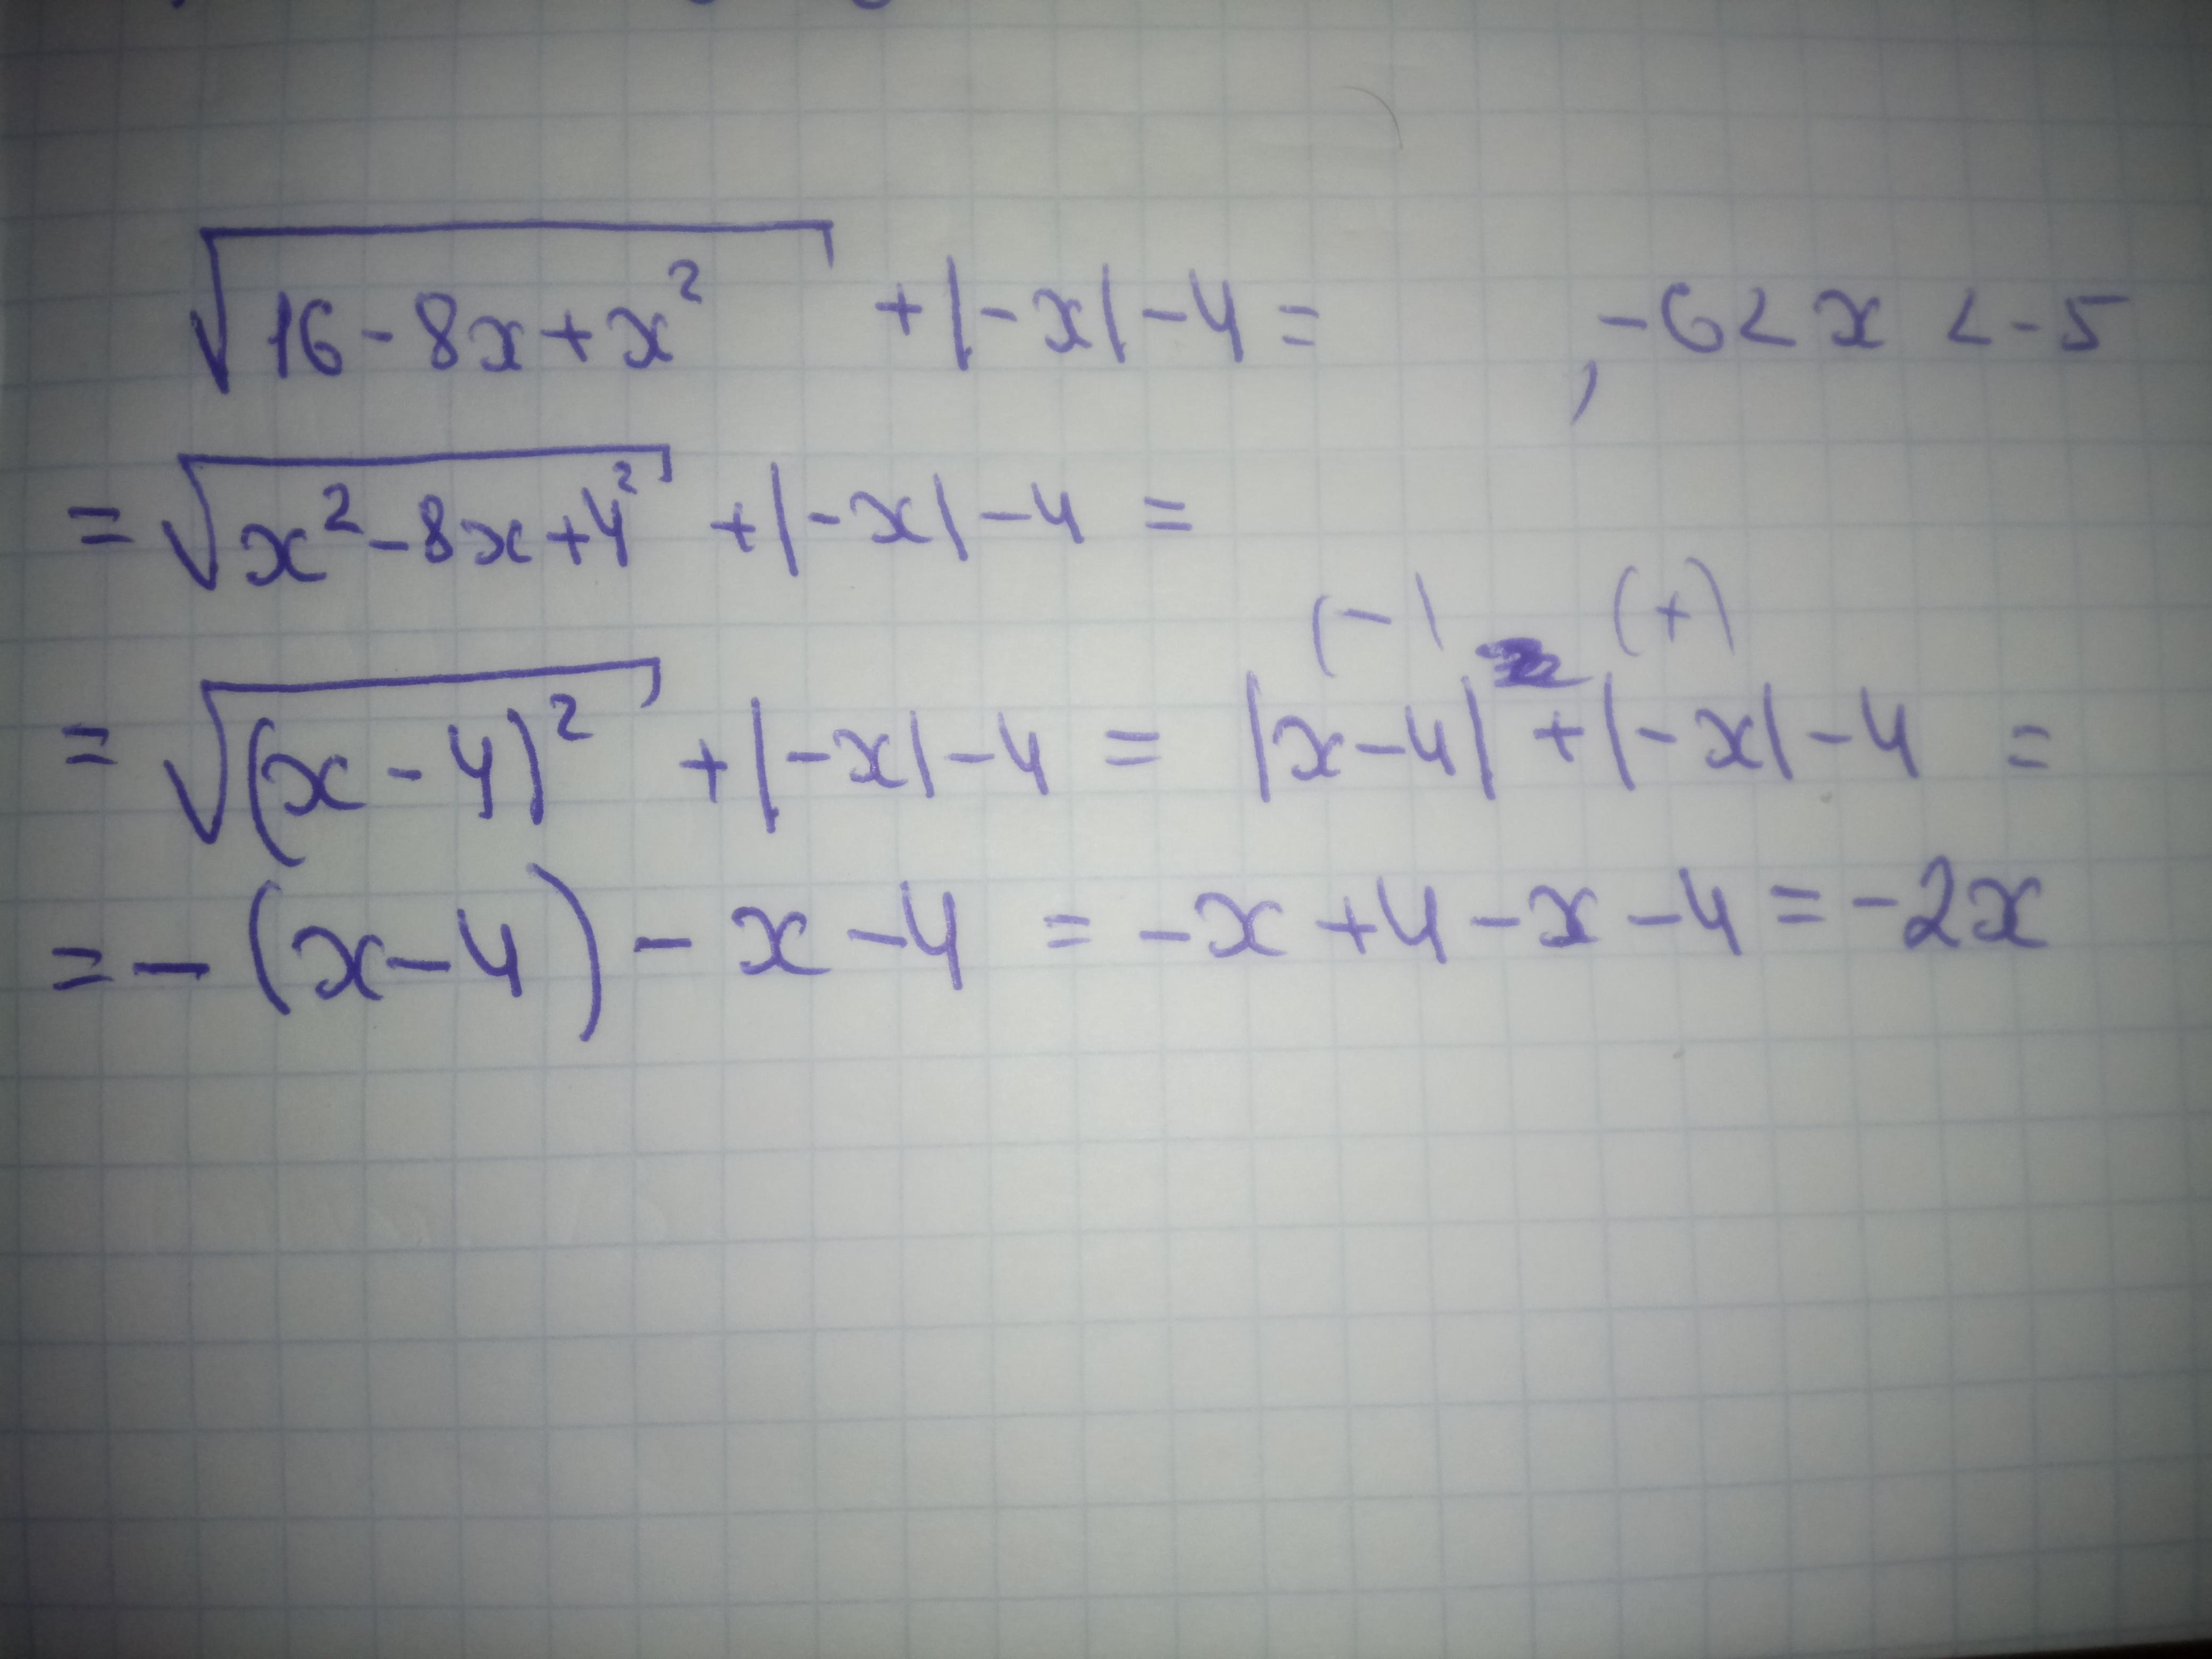 √16-8x+x² +|-x|-4= , -6<x<-5
=√x²-8x+4² +|-x|-4=
(-) (+)
=√(x-4)² +|-x|-4=|x-4|+|-x|-4=
=-(x-4)-x-4=-x+4-x-4=-2x